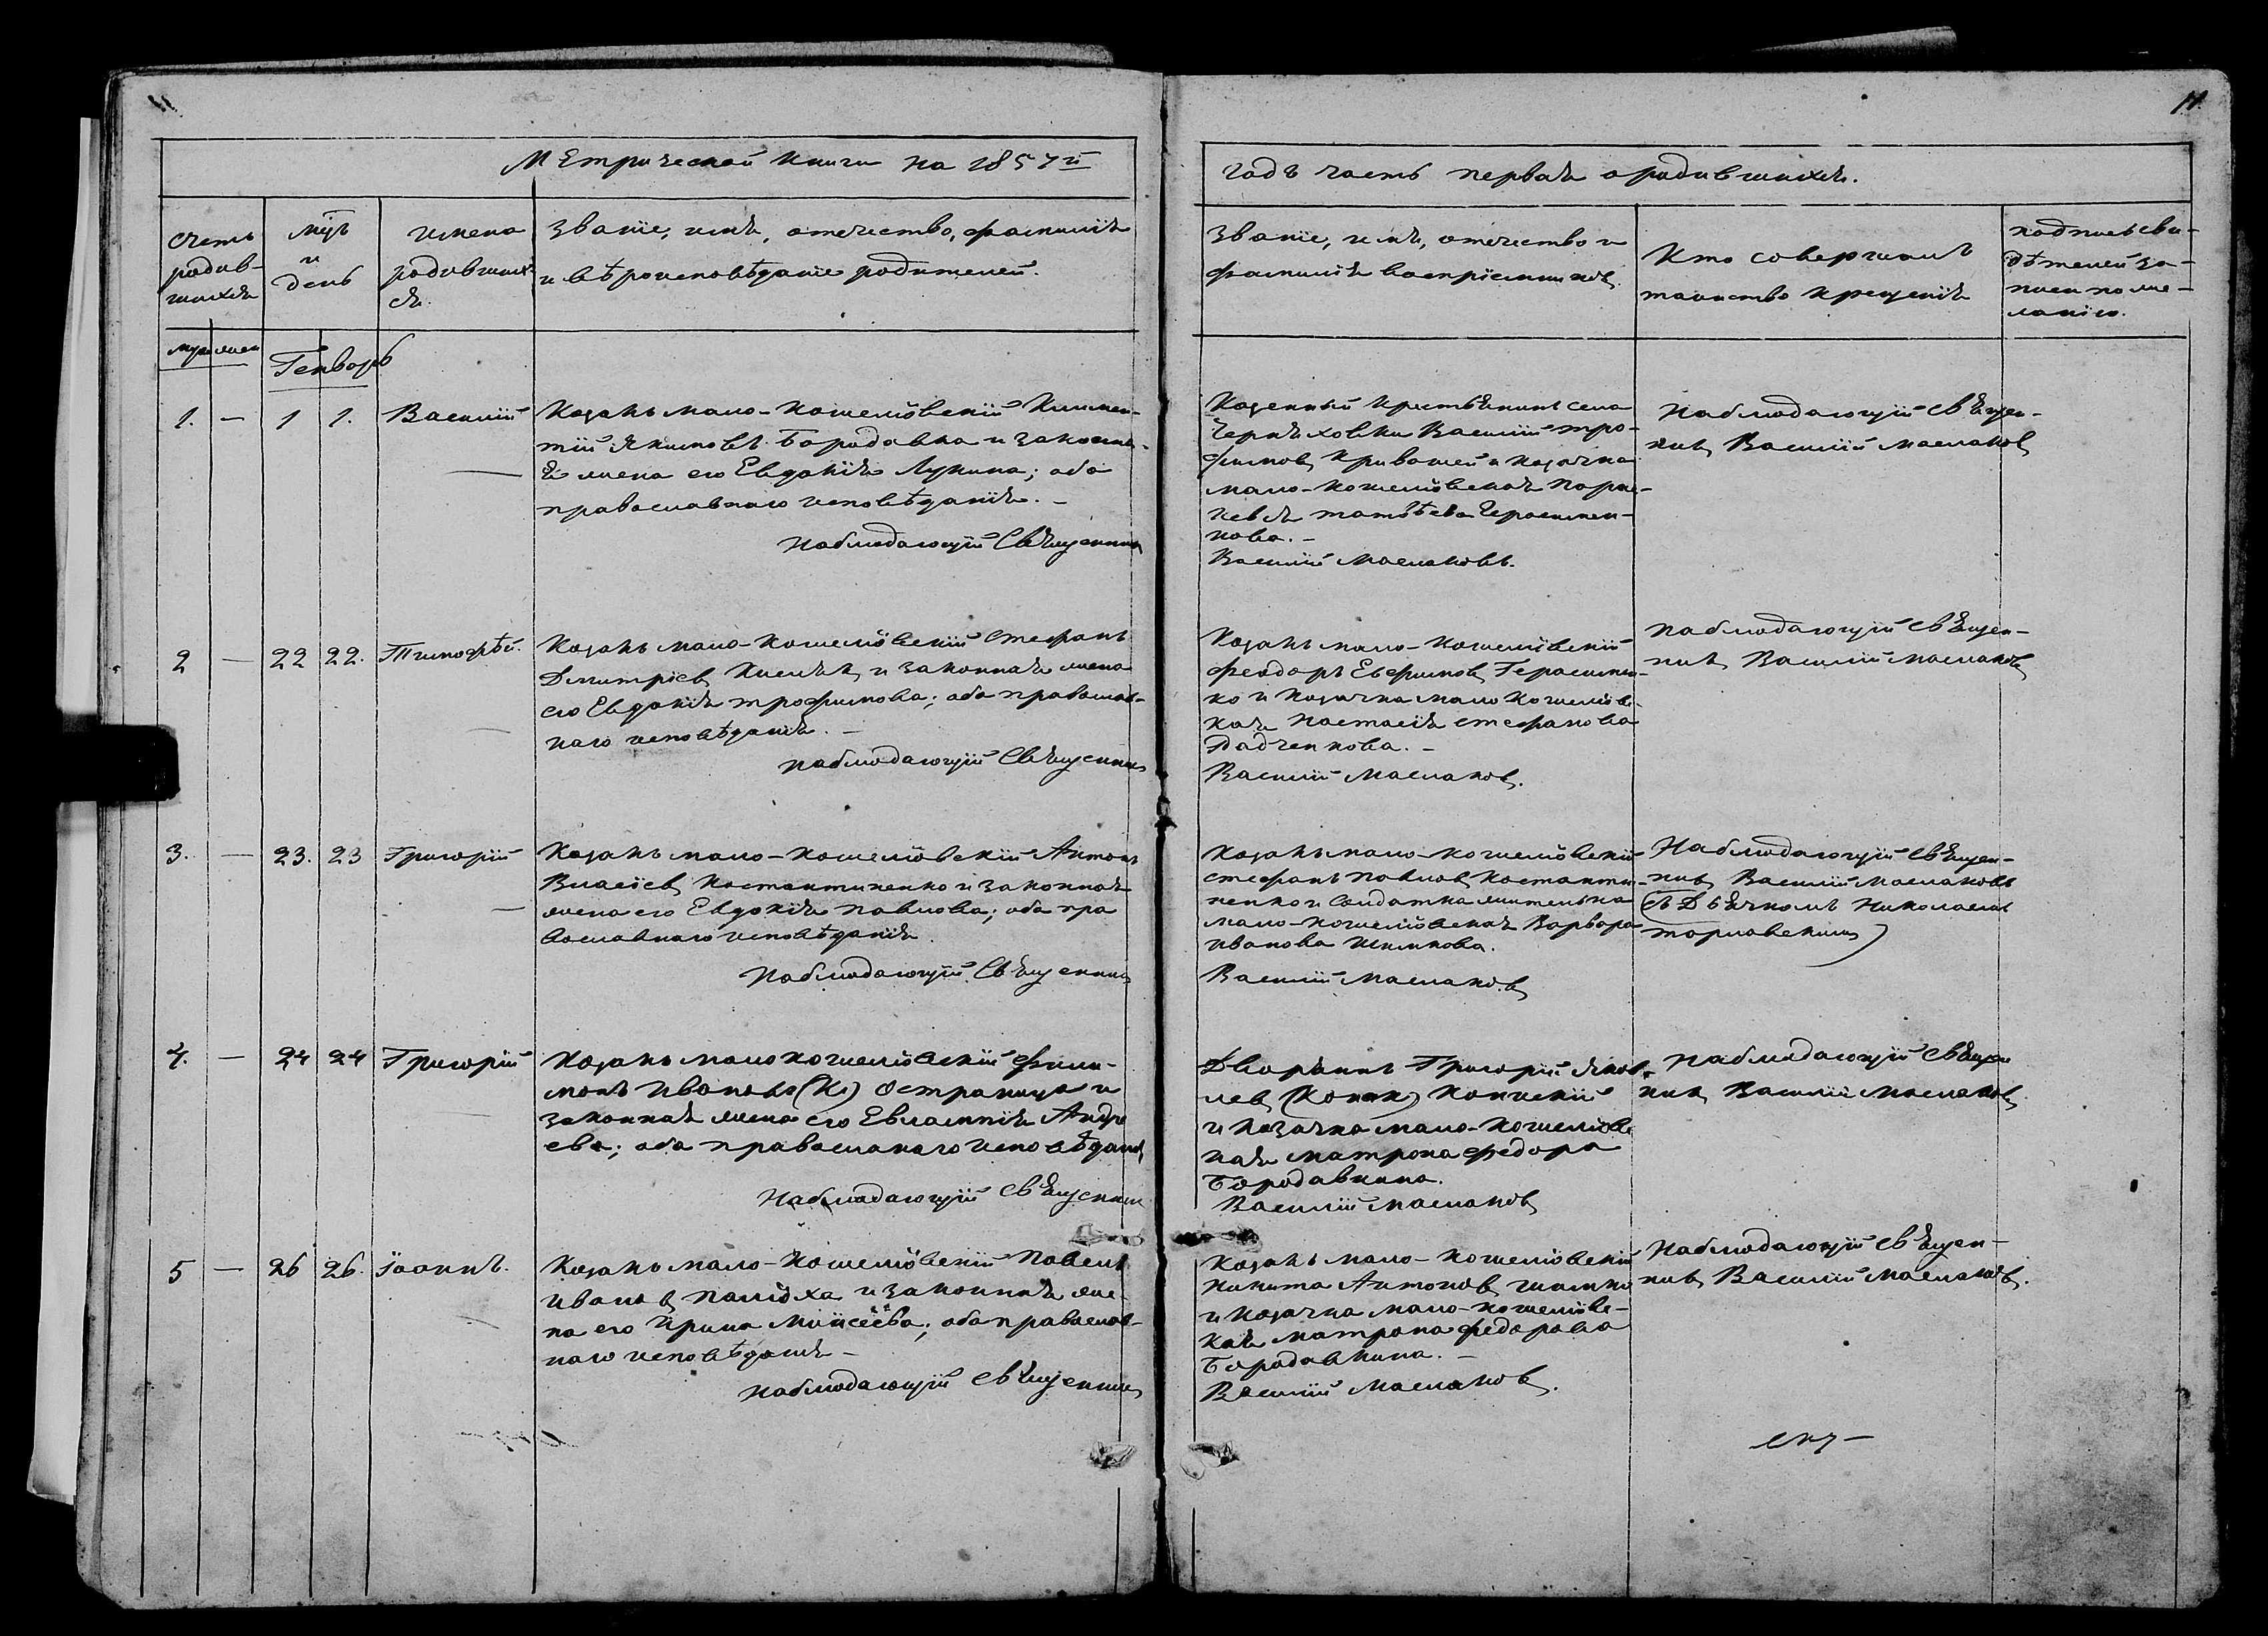 11
11.
Метрической книги на 1857й
годъ часть первая о родившихся.
Счетъ
родив-
шихся
мцъ
и
день
имена
родивших
ся.
Званіе, имя, отечество, фамилія
и вѣроисповѣданіе родителей.
Званіе, имя, отечество и
фамилія воспріемников.
Кто совершилъ
таинство крещенія
подпись сви-
дѣтелей за-
писи по же-
ланію.
муж жен
Генварь
1. — 1 1. Василій
Козакъ мало-кошелювскій Климен-
тій Якимовъ Бородавка и законна-
я жена его Евдокія Лукина; оба
православнаго исповѣданія. —
Наблюдающій Священник
Казенный крестьянинъ села
Черняховки Василій Тро-
фимов Кривошей и козачка
мало-кошелювская Парас-
кевія Герасимен-
кова. —
Василій Маслаковъ.
Наблюдающій Священ-
ник Василій Маслаков
2 — 22 22. Тимофѣй.
Козакъ мало-кошелювскій Стефанъ
Дмитріев Киселѣв и законная жена
его Евдокія Трофимова; оба православ-
наго исповѣданія. —
Наблюдающій Священник
Козакъ мало-кошелювскій
Феодоръ Евфимов Герасимен-
ко и козачка мало кошелюв-
кая Настасія Стефанова
Радченкова. —
Василій Маслаков.
Наблюдающій Священ-
ник Василій Маслаков
3. — 23. 23 Григорій
Козакъ мало-кошелювскій Антонъ
Власіев Костантиненко и законная
жена его Евдокія Павлова; оба пра
вославнаго исповѣданія.
Наблюдающій Священник
Козакъ мало-кошелювскій
Стефанъ Павлов Костанти-
ненко и солдатка жителька
мало-кошелювская Варвара
Иванова Шимкова.
Василій Маслаков
Наблюдающій Священ-
ник Василій Маслаковъ
(съ Дьячкомъ Николаемъ

4. — 24 24 Григорій
Козакъ мало кошелювскій Фили-
монъ Ивановъ (К) Остраница и
законная жена его Евлампія Андре
ева; оба православнаго исповѣданія
Наблюдающій Священник
Дворянинъ Григорій Яков-
лев (Копак) Копцскій
и козачка мало-кошелюв
кая Матрона Федора
Бородавкина.
Василій Маслаков
Наблюдающій Священ
ник Василій Маслаков
5 — 26 26. Іоаннъ.
Козакъ мало-кошелювскій Павелъ
Иванов Палюха и законная же-
на его Ирина Мойсеева; оба православ-
наго исповѣданія —
Наблюдающій Священник
Козакъ мало-кошелювскій
Никита Антонов Шимко
и козачка мало-кошелюв-
кая Матрона Федорова
Бородавкина. —
Василій Маслаков.
Наблюдающій Священ-
ник Василій Маслаков.